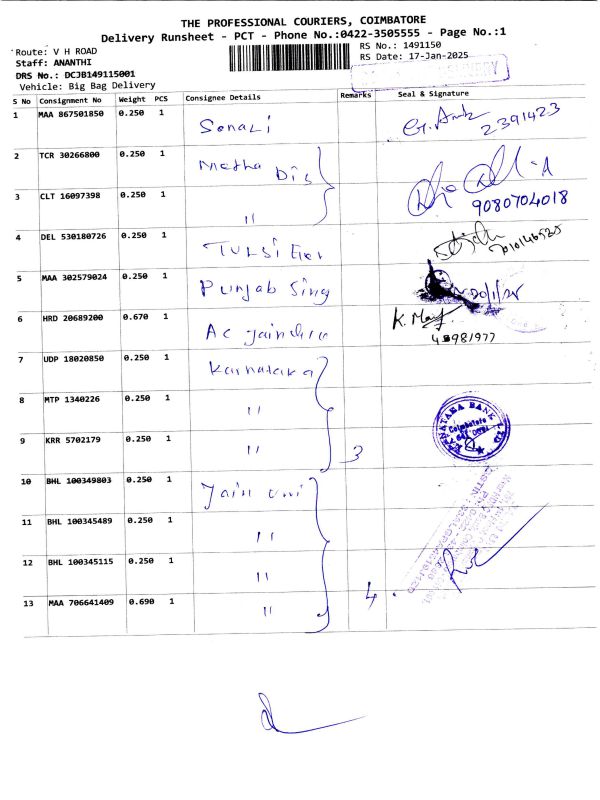 THE PROFESSIONAL COURIERS, COIMBATORE
Delivery Runsheet - PCT - Phone No.:0422-3505555 - Page No.:1
Route: V H ROAD
RS No.: 1491150
Staff: ANANTHI
RS Date: 17-Jan-2025
DRS No.: DCJB149115001
Vehicle: Big Bag Delivery
S No Consignment No Weight PCS Consignee Details Remarks Seal & Signature
1 MAA 867501850 0.250 1 Sonali 2391423
2 TCR 30266800 0.250 1 Metha Dis
3 CLT 16097398 0.250 1 " 9080704018
4 DEL 530180726 0.250 1 TULSI
5 MAA 302579024 0.250 1 Punjab Sing 20/1/25
6 HRD 20689200 0.670 1 Ac Jain K.
7 UDP 18020850 0.250 1 Karnataka
8 MTP 1340226 0.250 1 " KARNATAKA BANK LTD Coimbatore
9 KRR 5702179 0.250 1 " 3
10 BHL 100349803 0.250 1 Jain uni
11 BHL 100345489 0.250 1 "
12 BHL 100345115 0.250 1 "
13 MAA 706641409 0.690 1 " 4.